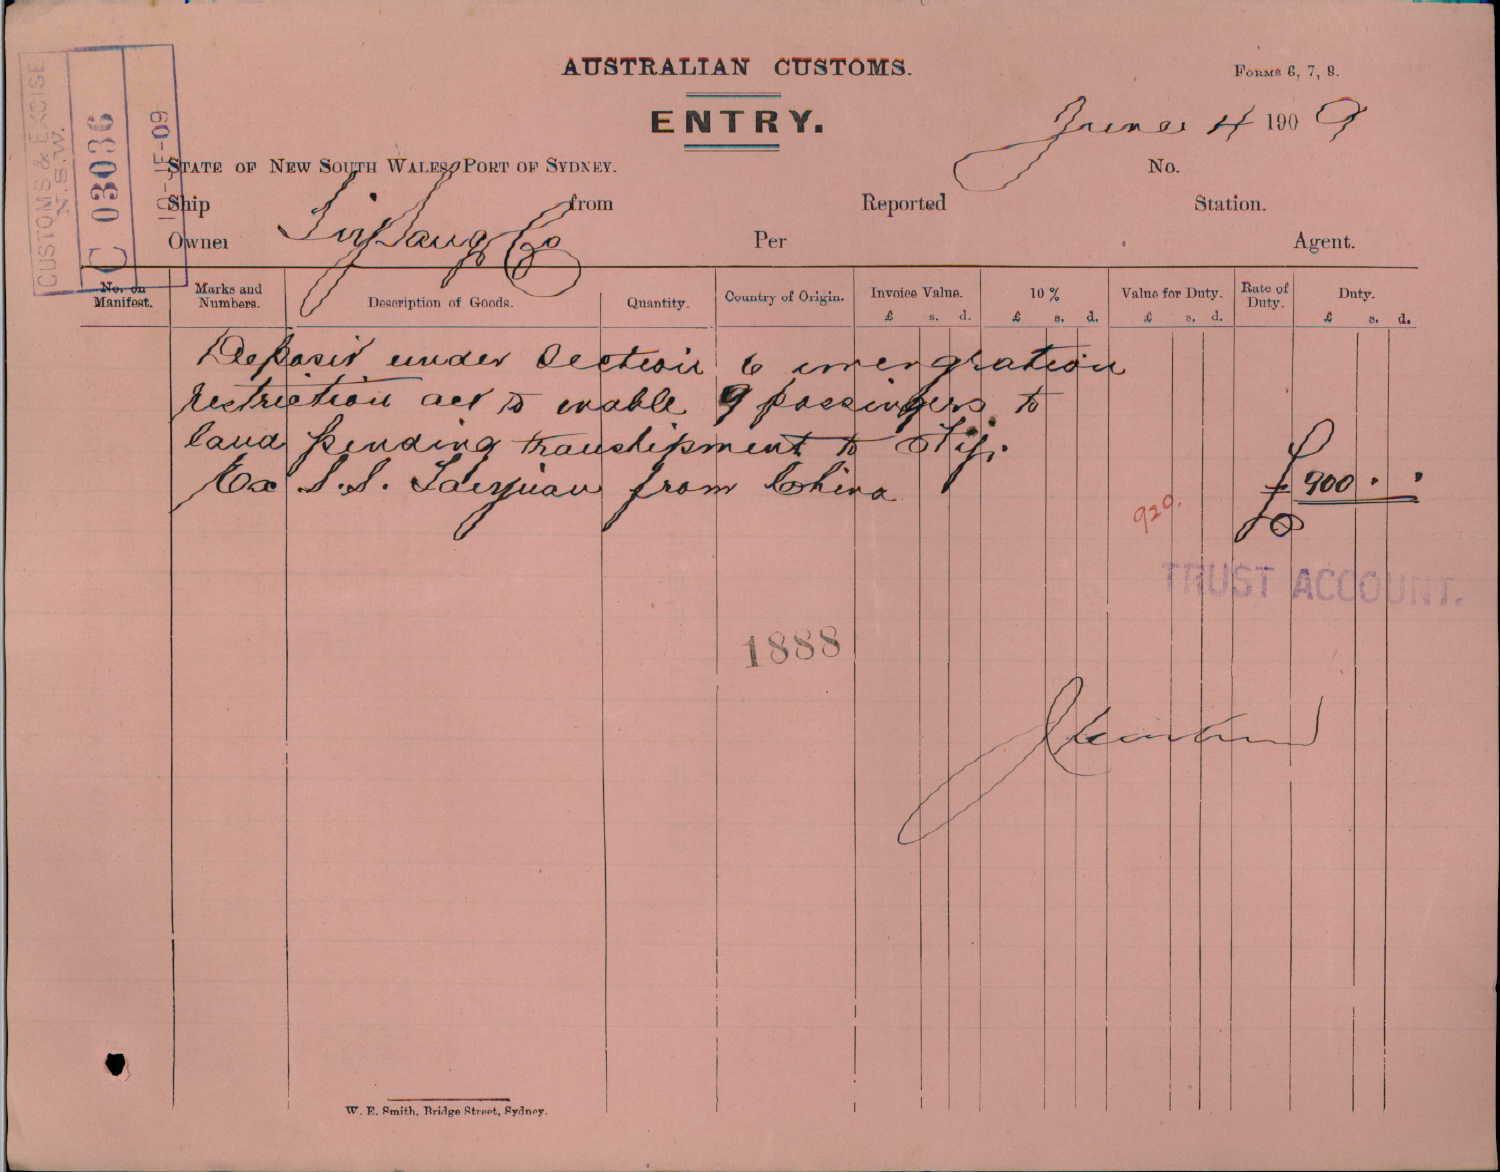 AUSTRALIAN CUSTOMS.
FORMS 6, 7, 8.
ENTRY.
June 4 1909
CUSTOMS & EXCISE
N.S.W.
C 03036
10-JE-09
STATE OF NEW SOUTH WALES, PORT OF SYDNEY.
No.
Ship from Reported Station.
Owner & Co Per Agent.
No. on Manifest.
Marks and Numbers.
Description of Goods.
Quantity.
Country of Origin.
Invoice Value.
£ s. d.
10 %
£ s. d.
Value for Duty.
£ s. d.
Rate of Duty.
Duty.
£ s. d.
Deposit under Section 6 immigration
restriction act to enable 9 passingers to
land pending transhipment to Fiji
Ex S.S. Taiyuan from China
£ 900 . .
920.
TRUST ACCOUNT.
1888
W. E. Smith, Bridge Street, Sydney.